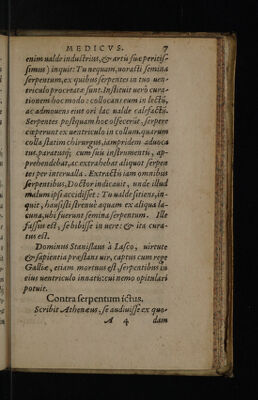 MEDICVS. 7
enim ualde industrius, & artis suæ peritis-
simus) inquit: Tu nequam, uorasti semina
serpentum, ex quibus serpentes in tuo uen-
triculo procreatæ sunt. Instituit uerò cura-
tionem hoc modo: collocans eum in lectū,
ac admouens eius ori lac ualde calefactū.
Serpentes postquam hoc olfecerūt, serpere
cœperunt ex uentriculo in collum. quarum
colla statim chirurgus, iampridem aduoca
tus, paratusq́; cum suis instrumentis, ap-
prehendebat, ac extrahebat aliquot serpen
tes per interualla. Extractis iam omnibus
serpentibus, Doctor indicauit, unde illud
malum ipsi accidisset: Tu ualde sitiens, in-
quit, hausisti strenuè aquam ex aliqua la-
cuna, ubi fuerunt semina serpentum. Ille
fassus est, se bibisse in uere: & ita cura-
tus est.
Dominus Stanislaus à Lasco, uirtute
& sapientia præstans uir, captus cum rege
Galliæ, etiam mortuus est serpentibus in
eius uentriculo innatis: cui nemo opitulari
potuit.
Contra serpentum ictus.
Scribit Athenæus, se audiuisse ex quo-
A 4 dam